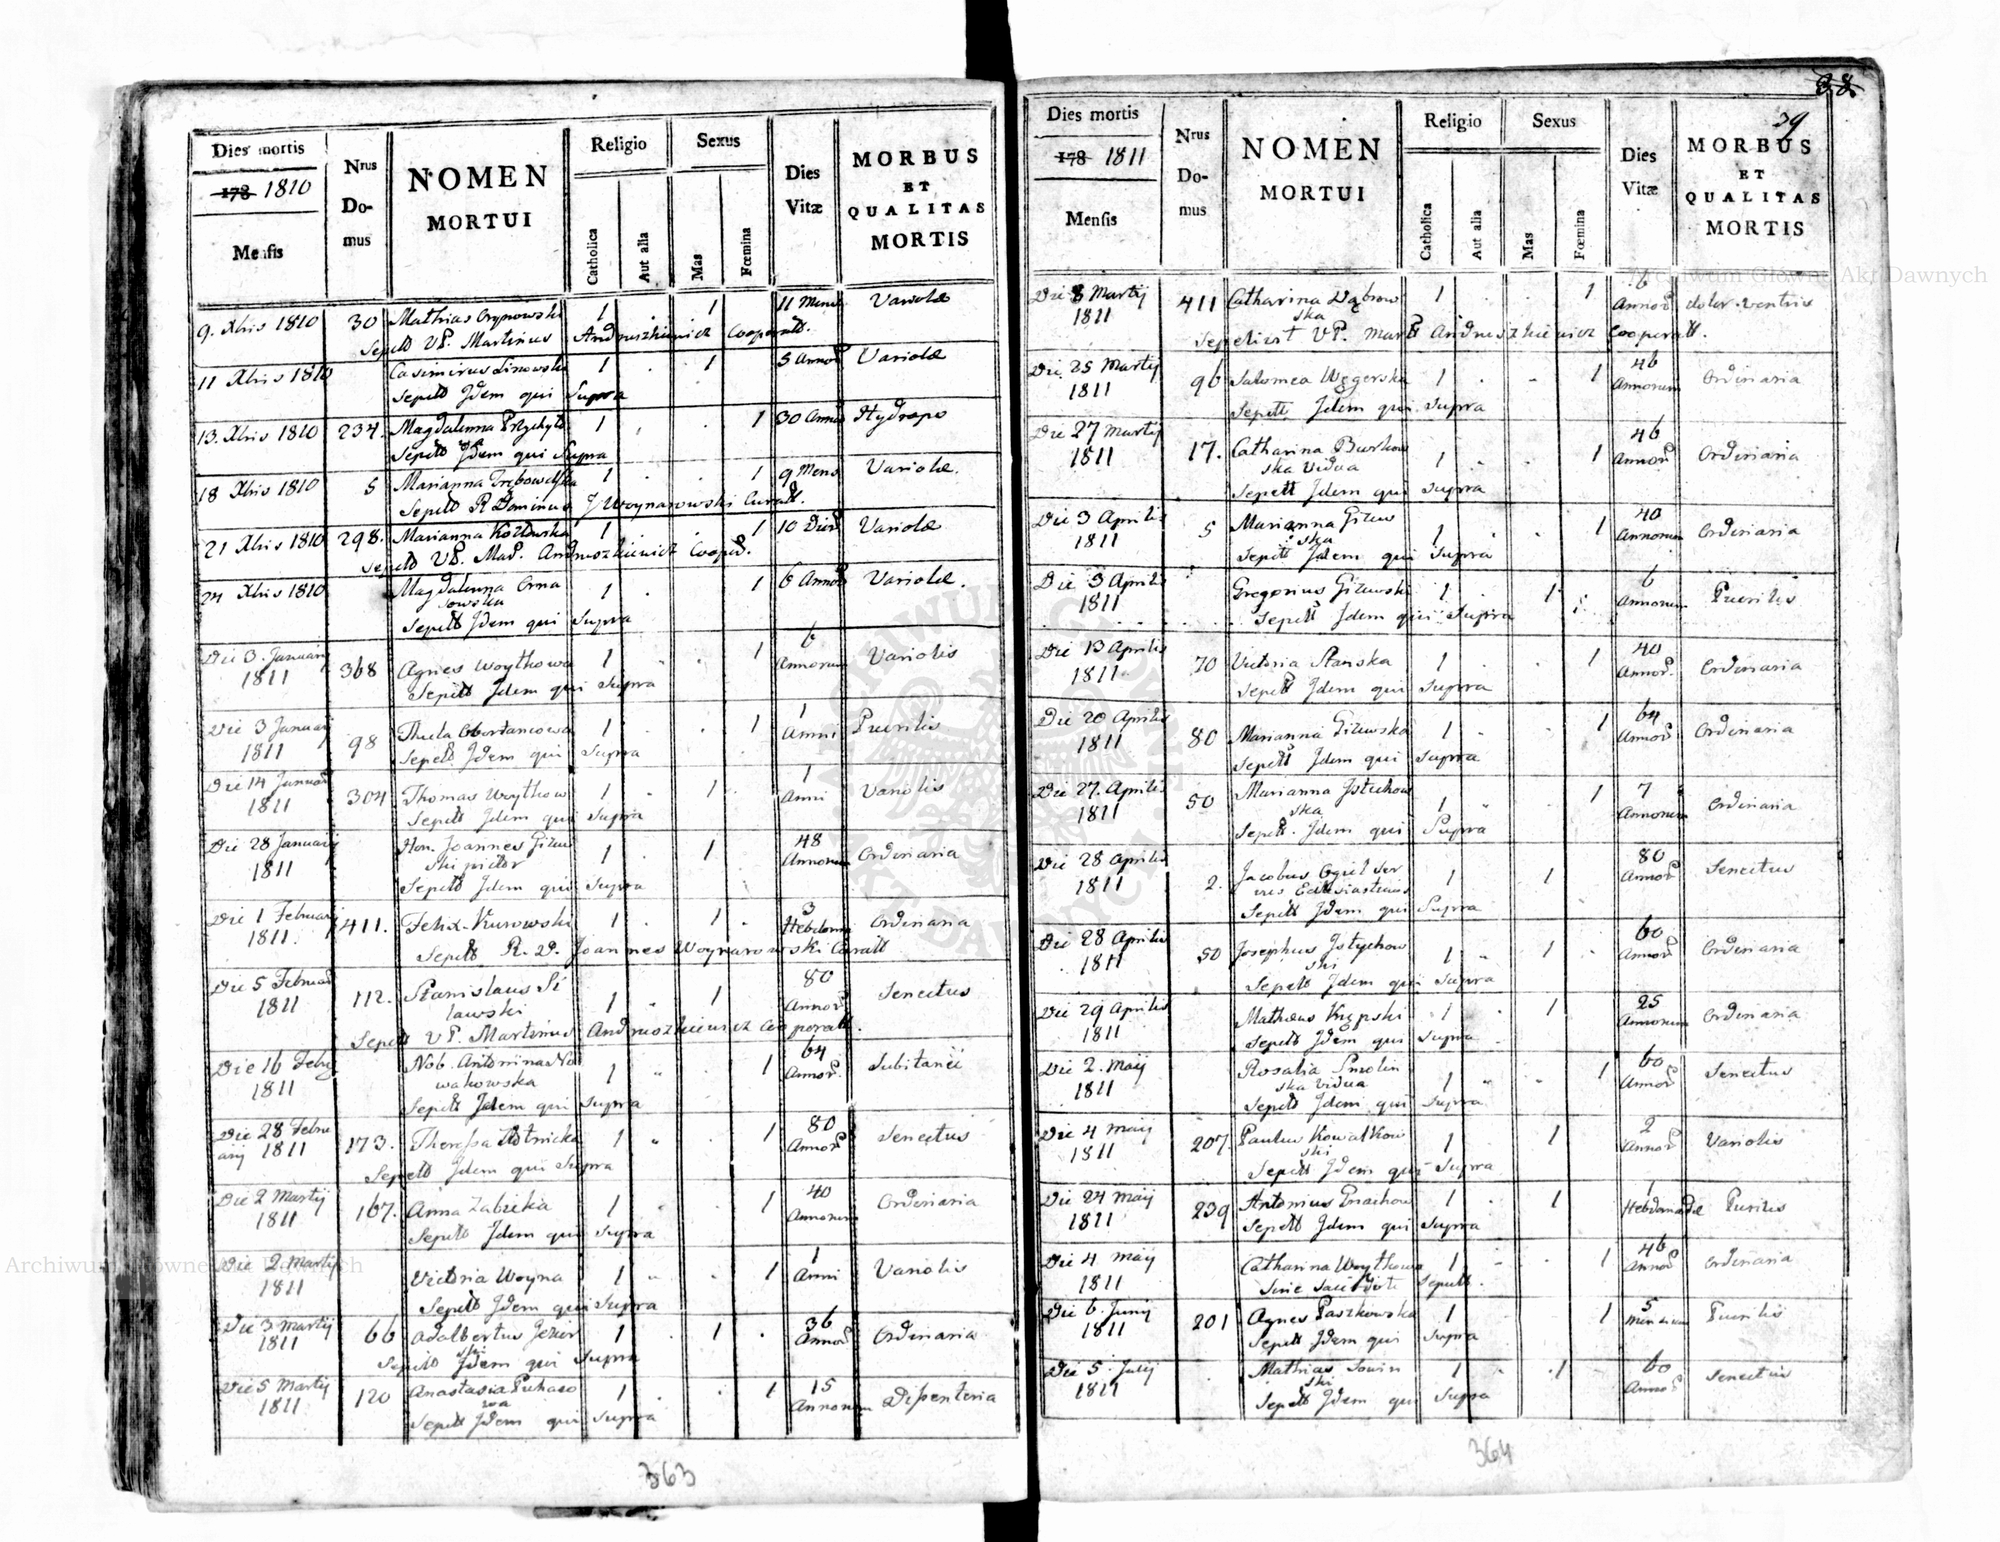 Dies mortis
178 1810
Mensis
Nrus
Do-
mus
NOMEN
MORTUI
Religio
Catholica
Aut alia
Sexus
Mas
Fœmina
Dies
Vitæ
MORBUS
ET
QUALITAS
MORTIS
9. Xbris 1810 30 Mathias Crynowski 1 . 1 11 Mens Variolæ
Sepelt VP. Martinus Andruszkiewicz Cooperatt.
11 Xbris 1810 Casimirus Linowski 1 . 1 5 Annor Variolæ
Sepelt Idem qui Supra
13. Xbris 1810 234. Magdalenna Przybyło 1 . . 1 30 Annor Hydropo
wa
Sepelt Idem qui Supra
18 Xbris 1810 5 Marianna Grębowska 1 . . 1 9 Mens Variolæ.
Sepelt R Dominus J Woynarowski Curatt.
21 Xbris 1810 298. Marianna Kozłowska 1 . . 1 10 Dier Variolæ
Sepelt VP. Mar. Andruszkiewicz Cooper.
24 Xbris 1810 Magdalenna Orna 1 . 1 6 Annor Variolæ.
sowska
Sepelt Idem qui Supra
Die 3. Januarij 368 Agnes Woytkowa 1 . 1 6 Annorum Variolis
1811
Sepelt Idem qui Supra
Die 3 Januarij 98 Thecla 1 . . 1 1 Anni Puerilis
1811
Sepelt Idem qui Supra
Die 14 Januar 304 Thomas Woytkow 1 . 1 1 Anni Variolis
1811
Sepelt Idem qui Supra
Die 28 Januarij Hon. Joannes Gizew 1 . 1 48 Annorum Ordinaria
1811 ski pictor
Sepelt Idem qui Supra
Die 1 Februarij 411. Felix Kurowski 1 . 1 . 3 Hebdom Ordinaria
1811.
Sepelt R. D. Joannes Woynarowski Curatt
Die 5 Februar 112. Stanislaus Si 1 " 1 80 Annor Senectus
1811 lawski
Sepelt VP. Martinus Andruszkiewicz Cooperatt.
Die 16 Febr Nob. Antonina No 1 " 1 64 Annor. Subitanei
1811 wakowska
Sepelt Idem qui Supra
Die 28 Febru 173. Theressa 1 " 1 80 Annor Senectus
arij 1811
Sepelt Idem qui Supra
Die 2 Martij 167. Anna Zabicka 1 . . 1 40 Annorum Ordinaria
1811
Sepelt Idem qui Supra
Die 2 Martij Victoria Woyna 1 " . 1 1 Anni Variolis
1811
Sepelt Idem qui Supra
Die 3 Martij 66 Adalbertus Jezior 1 . 1 . 36 Annor Ordinaria
1811 ski
Sepelt Idem qui Supra
Die 5 Martij 120 Anastasia Puhaso 1 . . 1 15 Annorum Dissenteria
1811 wa
Sepelt Idem qui Supra
363
38.
39
Dies mortis
178 1811
Mensis
Nrus
Do-
mus
NOMEN
MORTUI
Religio
Catholica
Aut alia
Sexus
Mas
Fœmina
Dies
Vitæ
MORBUS
ET
QUALITAS
MORTIS
Die 8 Martij 411 Catharina Dąbrow 1 . . 1 6 Annor dolor ventris
1811 ska
Sepelivit VP. Mart Andruszkiewicz Cooperatt.
Die 25 Martij 96 Salomea Węgerska 1 . . 1 46 Annorum Ordinaria
1811
Sepelt Idem qui Supra
Die 27 Martij 17. Catharina Burkow 1 . . 1 46 Annor Ordinaria
1811 ska Vidua
Sepelt Idem qui Supra
Die 3 Aprilis 5 Marianna Gizew 1 . . 1 40 Annorum Ordinaria
1811 ska
Sepelt Idem qui Supra
Die 3 Aprilis Gregorius Gizewski 1 . 1 6 Annorum Puerilis
1811
Sepelt Idem qui Supra
Die 13 Aprilis 70 Victoria Stanska 1 . . 1 40 Annor. Ordinaria
1811
Sepelt Idem qui Supra
Die 20 Aprilis 80 Marianna Gizewska 1 . . 1 64 Annor Ordinaria
1811
Sepelt Idem qui Supra
Die 27. Aprilis 50 Marianna Jstichow 1 " . 1 7 Annorum Ordinaria
1811 ska
Sepelt. Idem qui Supra
Die 28 Aprilis 2. Jacobus Cgiel Ser 1 . 1 80 Annor Senectus
1811 vus Eclesiasticus
Sepelt Idem qui Supra
Die 28 Aprilis 50 Josephus Jstychow 1 " 1 . 60 Annor Ordinaria
1811 ski
Sepelt Idem qui Supra
Die 29 Aprilis Matheus Krępski 1 . 1 25 Annorum Ordinaria
1811
Sepelt Idem qui Supra
Die 2. Maij Rosalia Smolin 1 " . 1 60 Annor Senectus
1811 ska Vidua
Sepelt Idem qui Supra
Die 4 Maij 207. Paulus Kowalkow 1 . 1 2 Annor Variolis
1811 ski
Sepelt Idem qui Supra
Die 24 Maij 239 Antonius 1 . 1 1 Hebdomadæ Puerilis
1811
Sepelt Idem qui Supra
Die 4 Maij Catharina Woytkowa 1 . . 1 46 Annor Ordinaria
1811 Sine Sacerdote Sepult.
Die 6. Junij 201 Agnes Paszkowska 1 . . 1 5 Mensium Puerilis
1811
Sepelt Idem qui Supra
Die 5. Julij Mathias Sowin 1 . 1 60 Annor Senectus
1811 ski
Sepelt Idem qui Supra
364
Archiwum Główne Akt Dawnych
Archiwum Główne Akt Dawnych
ARCHIWUM GŁÓWNE AKT DAWNYCH